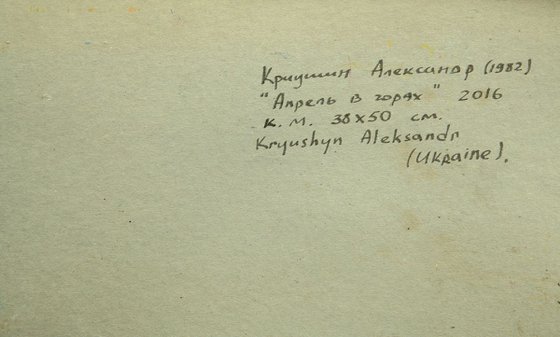 Криушин Александр (1982)
"Апрель в горах" 2016
к. м. 38x50 см.
Kryushyn Aleksandr
(Ukraine).